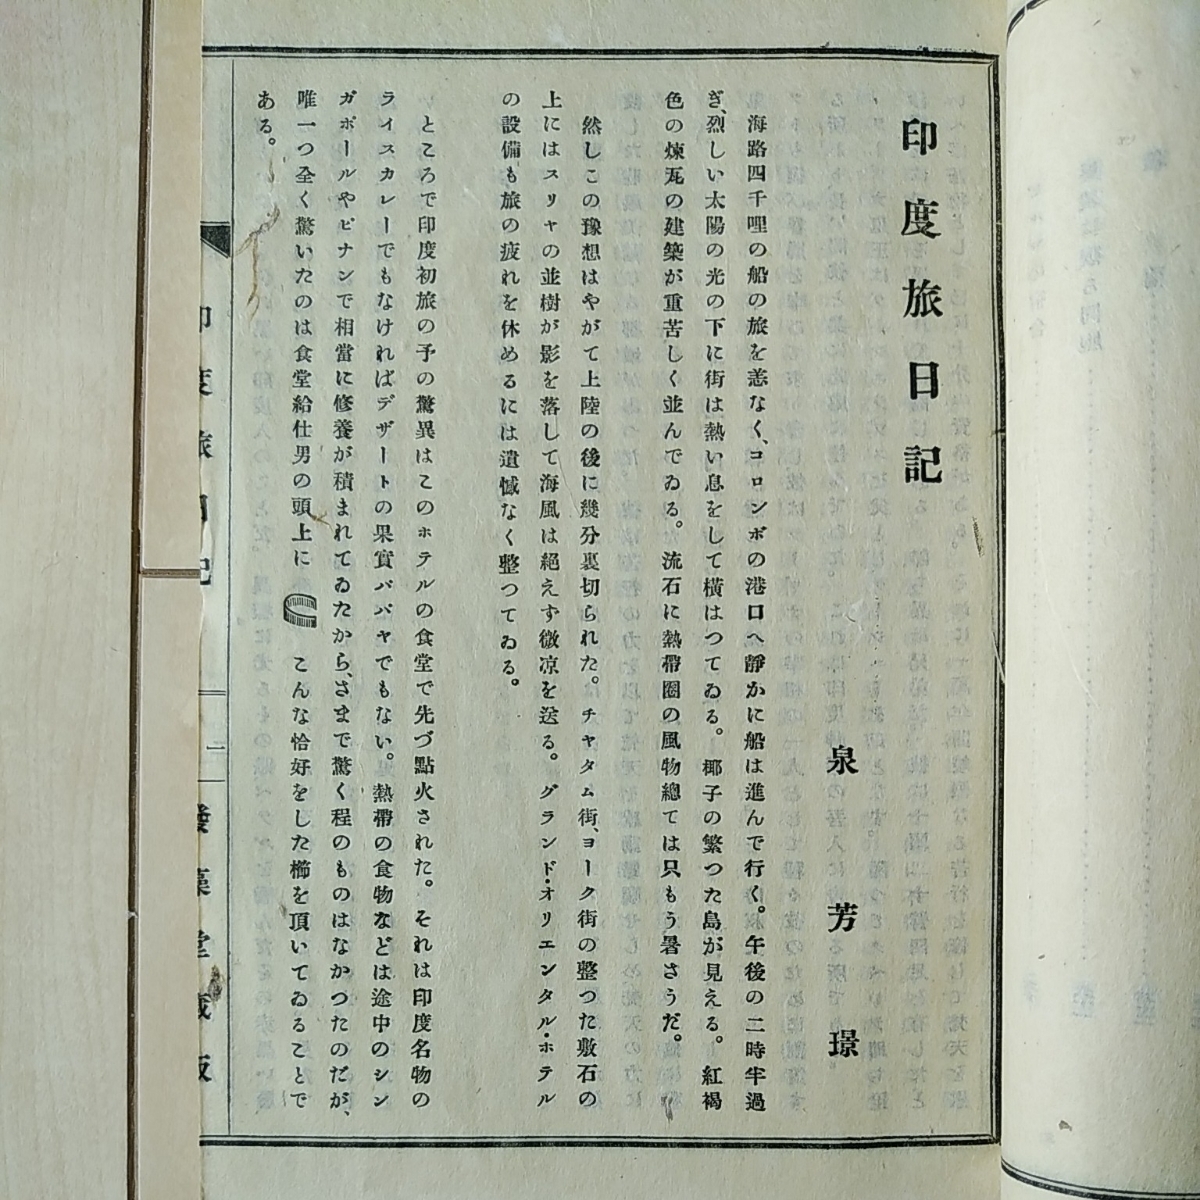 印度旅日記
泉芳璟
海路四千哩の船の旅を恙なく、コロンボの港口へ靜かに船は進んで行く。午後の二時半過
ぎ、烈しい太陽の光の下に街は熱い息をして橫はつてゐる。椰子の繁つた島が見える。紅褐
色の煉瓦の建築が重苦しく並んでゐる。流石に熱帶圈の風物總ては只もう暑さうだ。
然しこの豫想はやがて上陸の後に幾分裏切られた。チヤタム街、ヨーク街の整つた敷石の
上にはスリヤの並樹が影を落して海風は絕えず微凉を送る。グランド・オリエンタル・ホテル
の設備も旅の疲れを休めるには遺憾なく整つてゐる。
ところで印度初旅の予の驚異はこのホテルの食堂で先づ點火された。それは印度名物の
ライスカレーでもなければデザートの果實パパヤでもない。熱帶の食物などは途中のシン
ガポールやピナンで相當に修養が積まれてゐたから、さまで驚く程のものはなかつたのだが、
唯一つ全く驚いたのは食堂給仕男の頭上に こんな恰好をした櫛を頂いてゐることで
ある。
印度旅日記
一
發藻堂藏版